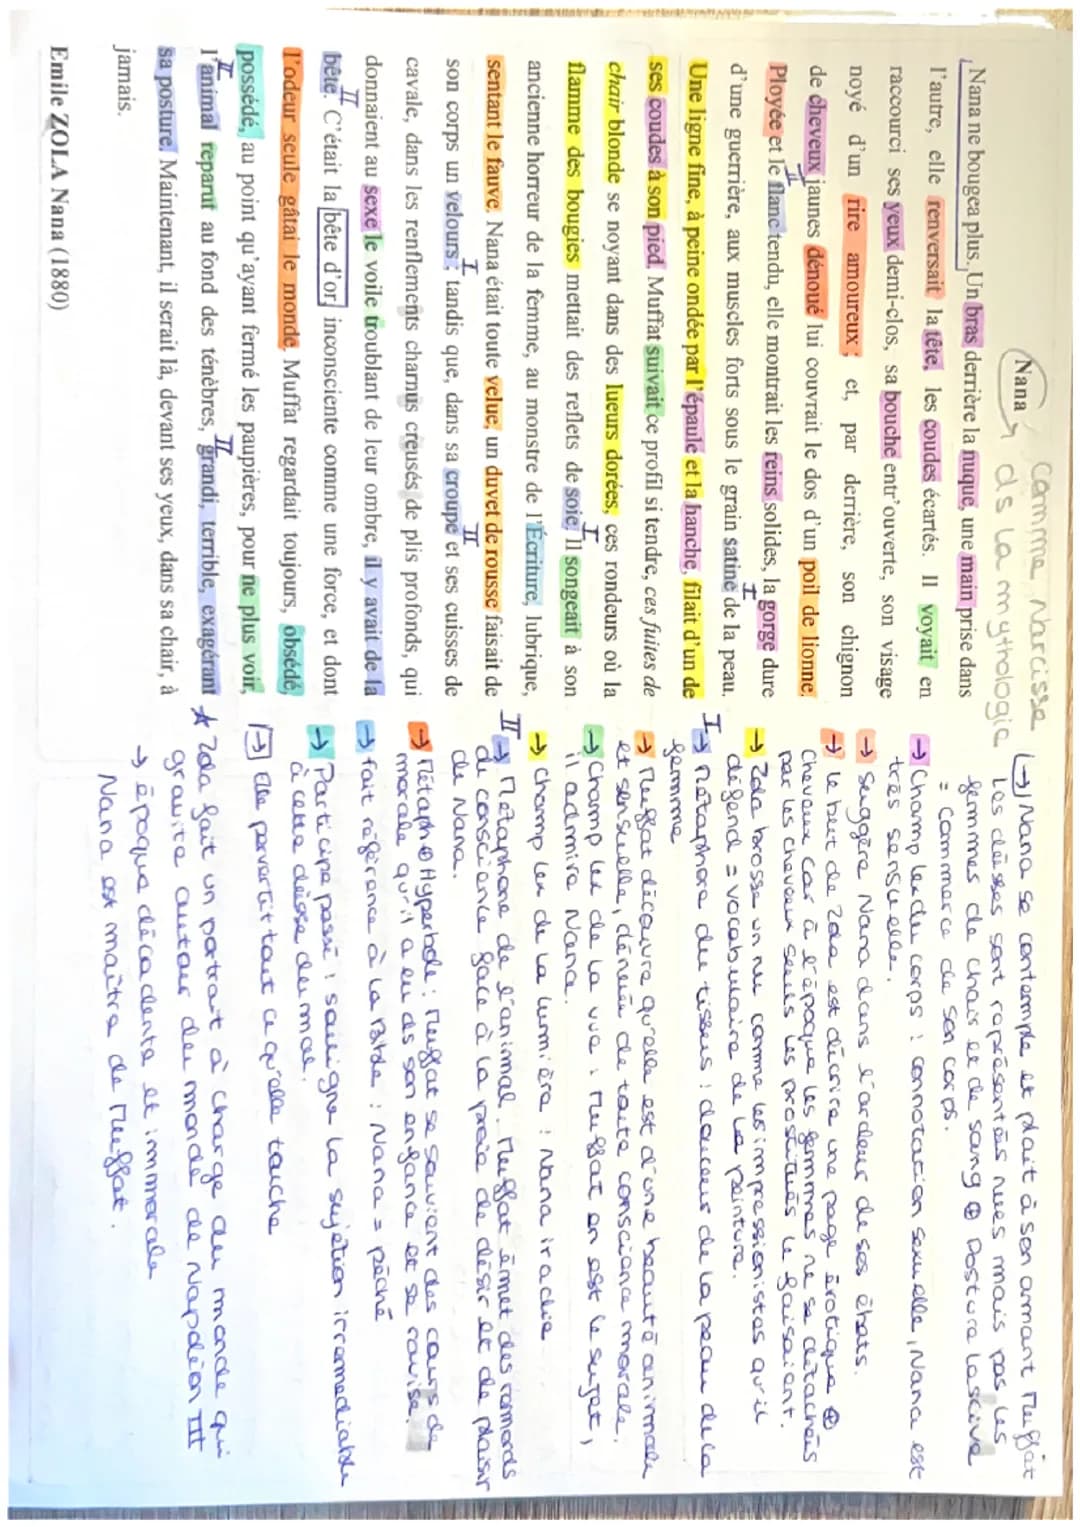 Nana
comme Narcisse
ds la mythologie
Nana ne bougea plus. Un bras derrière la nuque, une main prise dans
l'autre, elle renversait la tête, les coudes écartés. Il voyait en
raccourci ses yeux demi-clos, sa bouche entr'ouverte, son visage
noyé d'un rire amoureux ; et, par derrière, son chignon
de cheveux jaunes dénoué lui couvrait le dos d'un poil de lionne.
Ployée et le flanc tendu, elle montrait les reins solides, la gorge dure
d'une guerrière, aux muscles forts sous le grain satiné de la peau.
Une ligne fine, à peine ondée par l'épaule et la hanche, filait d'un de
ses coudes à son pied. Muffat suivait ce profil si tendre, ces fuites de
chair blonde se noyant dans des lueurs dorées, ces rondeurs où la
flamme des bougies mettait des reflets de soie. Il songeait à son
ancienne horreur de la femme, au monstre de l'Écriture, lubrique,
sentant le fauve. Nana était toute velue, un duvet de rousse faisait de
son corps un velours ; tandis que, dans sa croupe et ses cuisses de
cavale, dans les renflements charnus creusés de plis profonds, qui
donnaient au sexe le voile troublant de leur ombre, il y avait de la
bête. C'était la bête d'or, inconsciente comme une force, et dont
l'odeur seule gâtait le monde. Muffat regardait toujours, obsédé,
possédé, au point qu'ayant fermé les paupières, pour ne plus voir,
l'animal reparut au fond des ténèbres, grandi, terrible, exagérant
sa posture. Maintenant, il serait là, devant ses yeux, dans sa chair, à
jamais.
Emile ZOLA Nana (1880)
→ Nana se contemple et plait à son amant Muffat
Les déesses sont représentées nues mais pas les
femmes de chair et de sang ⊕ Posture lascive
= commerce de son corps.
→ Champ lex du corps : connotation sexuelle, Nana est
très sensuelle.
→ Suggère Nana dans l'ardeur de ses ébats.
→ le but de Zola est d'écrire une page érotique ⊕
Cheveux car à l'époque les femmes ne se détachées
pas les cheveux seuls les prostituées le faisaient.
→ Zola brosse un nu comme les impressionistes qu'il
défend = vocabulaire de la peinture.
I → Métaphore du tissus : douceur de la peau de la
femme
→ Muffat découvre qu'elle est d'une beauté animale
et sensuelle, dénuée de toute conscience morale.
→ Champ lex de la vue : Muffat en est le sujet,
il admire Nana.
→ Champ lex de la lumière : Nana iradie
II → Métaphore de l'animal. Muffat émet des remords
de conscience face à la proie de désir et de plaisir
de Nana.
→ Métaph ⊕ Hyperbole : Muffat se souvient des cours de
morale qu'il a eu ds son enfance et se ravise.
→ fait référence à la Bible : Nana = péché
→ Participe passé : souligne la sujétion irremediable
à cette déesse du mal.
→ Elle pervertit tout ce qu'elle touche
★ Zola fait un portrait à charge du monde qui
gravite autour du monde de Napoléon III
→ époque décadente et immorale
Nana est maître de Muffat.